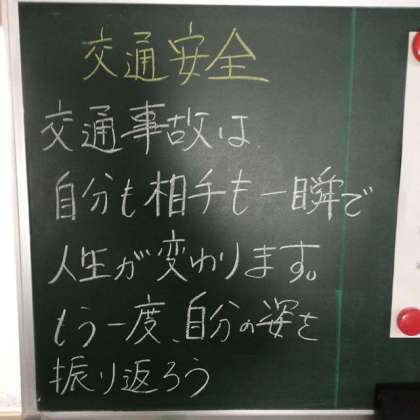 交通安全
交通事故は
自分も相手も一瞬で
人生が変わります。
もう一度、自分の姿を
振り返ろう